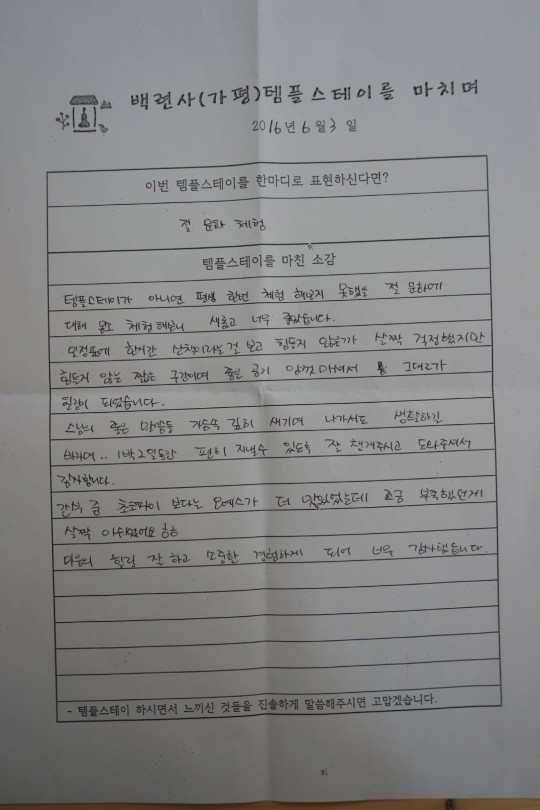 백련사(가평)템플스테이를 마치며
2016년 6월 3일
이번 템플스테이를 한마디로 표현하신다면?
절 문화 체험
템플스테이를 마친 소감
템플스테이가 아니면 평생 한번 체험 해보지 못했을 절 문화에
대해 체험해보니 새롭고 너무 좋았습니다.
일정표에 한시간 산책이라는걸 보고 힘들지 않을까 살짝 걱정했지만
힘들지 않는 짧은 구간이며 좋은 공기 마셔서 그대로가
힐링이 되었습니다.
스님의 좋은 말씀들 가슴속 깊히 새기며 나가서도 생활하길
바라며.. 1박2일동안 편히 지낼수 있도록 잘 챙겨주시고 도와주셔서
감사합니다.
간식 중 초코파이 보다는 오예스가 더 맛있었는데 조금 부족했던게
살짝 아쉬웠어요 ㅎㅎ
마음의 힐링 잘 하고 소중한 경험하게 되어 너무 감사했습니다.
- 템플스테이 하시면서 느끼신 것들을 진솔하게 말씀해주시면 고맙겠습니다.